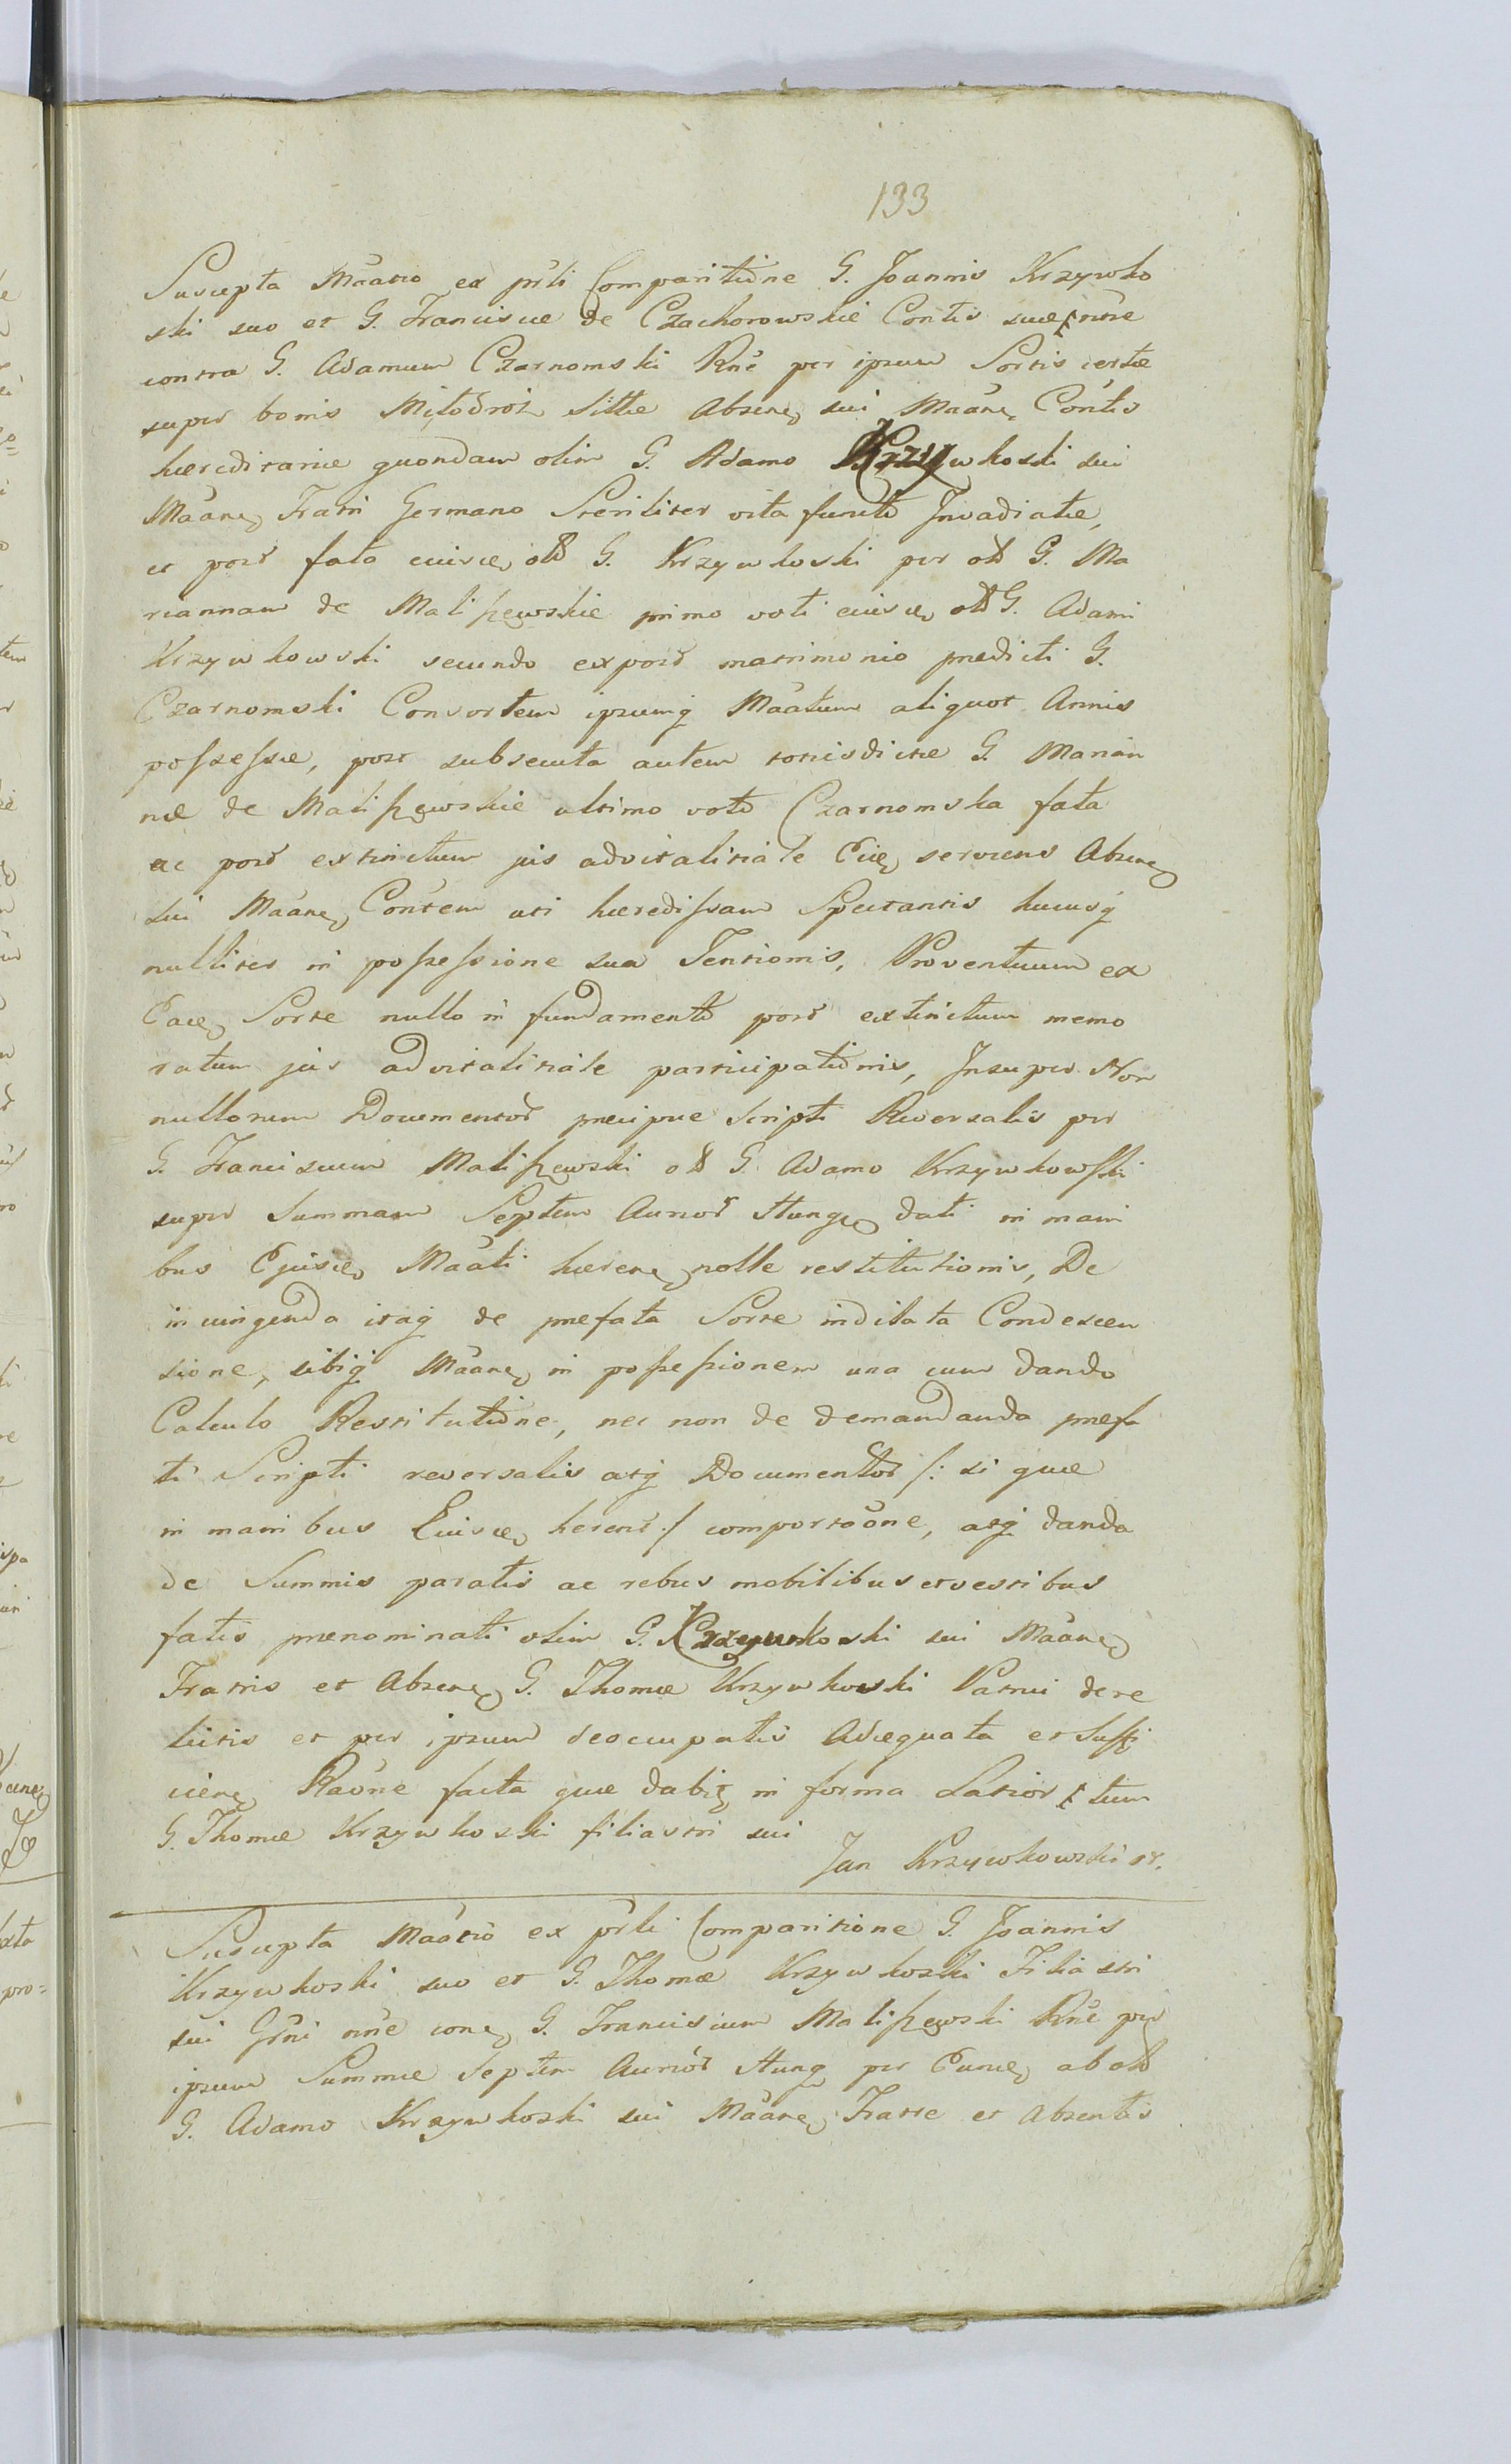 133
Suscepta Mãatio ex prsli Comparitione G. Joannis Krzywko
ski suo et G. Franciscæ de Czachorowskie Contis suæ nõe
contra G. Adamum Czarnomski Rnẽ per ipsum Sortis certæ
super bonis Miłodroż Sittæ Absen sui Mãan Cõntis
hæreditariæ quondam olim G. Adamo Krzywkoski sui
Mãan Fratri Germano Steriliter vita functo Invadiatæ,
et post fata eiusd old G. Krzywkoski per old G. Ma
riannam de Maliszewskie primo voti eiusd old G. Adami
Krzywkowski secundo expost matrimonio prædicti G.
Czarnomski Consortem ipsumq Mãatum aliquot Annis
possessæ, post subsecuta autem totiesdictæ G. Marian
næ de Maliszewskie ultimo voto Czarnomska fata
ac post extinctum jus advitalitiale Eid serviens Absen
sui Mãan Cõntem uti hæredissam Spectantis hucusq
nulliter in possessione sua Tentionis, Proventuum ex
Eade Sorte nullo in fundamento post extinctum memo
ratum jus advitalitiale participationis, Insuper Non
nullorum Documentor præcipue Scripti Reversalis per
G. Franciscum Maliszewski old G. Adamo Krzywkowski
super Summam Septem Aureor Hung dati in mani
bus Ejusd Mãati hæren nolle restitutionis, De
incuingenda itaq de præfata Sorte indilata Condescen
sione, sibiq Mãan in possessionem una cum dando
Calculo Restitutione, nec non de demandanda præfa
ti Scripti reversalis atq Documentor /: si quæ
in manibus Eiusd herent :/ comportaõne, atq danda
de Summis paratis ac rebus mobilibus et vestibus
fatis prænominati olim G. Krzywkoski sui Mãan
Fratris et Absen G. Thomæ Krzywkoski Patrui dere
lictis et per ipsum deocupatis Adæquata et Suffi
cien Raõne facta quæ dabit in forma Latiori tum
G. Thomæ Krzywkoski filiastri sui
Jan Krzywkowski
Suscepta Mãatio ex prsli Comparitione G. Joannis
Krzywkoski suo et G. Thomæ Krzywkoski Filiastri
sui Grni nne con G. Franciscum Maliszewski Rnẽ per
ipsum Summæ Septem Aureor Hung per Eund ab old
G. Adamo Krzywkoski sui Mãan Fratre et Absentis